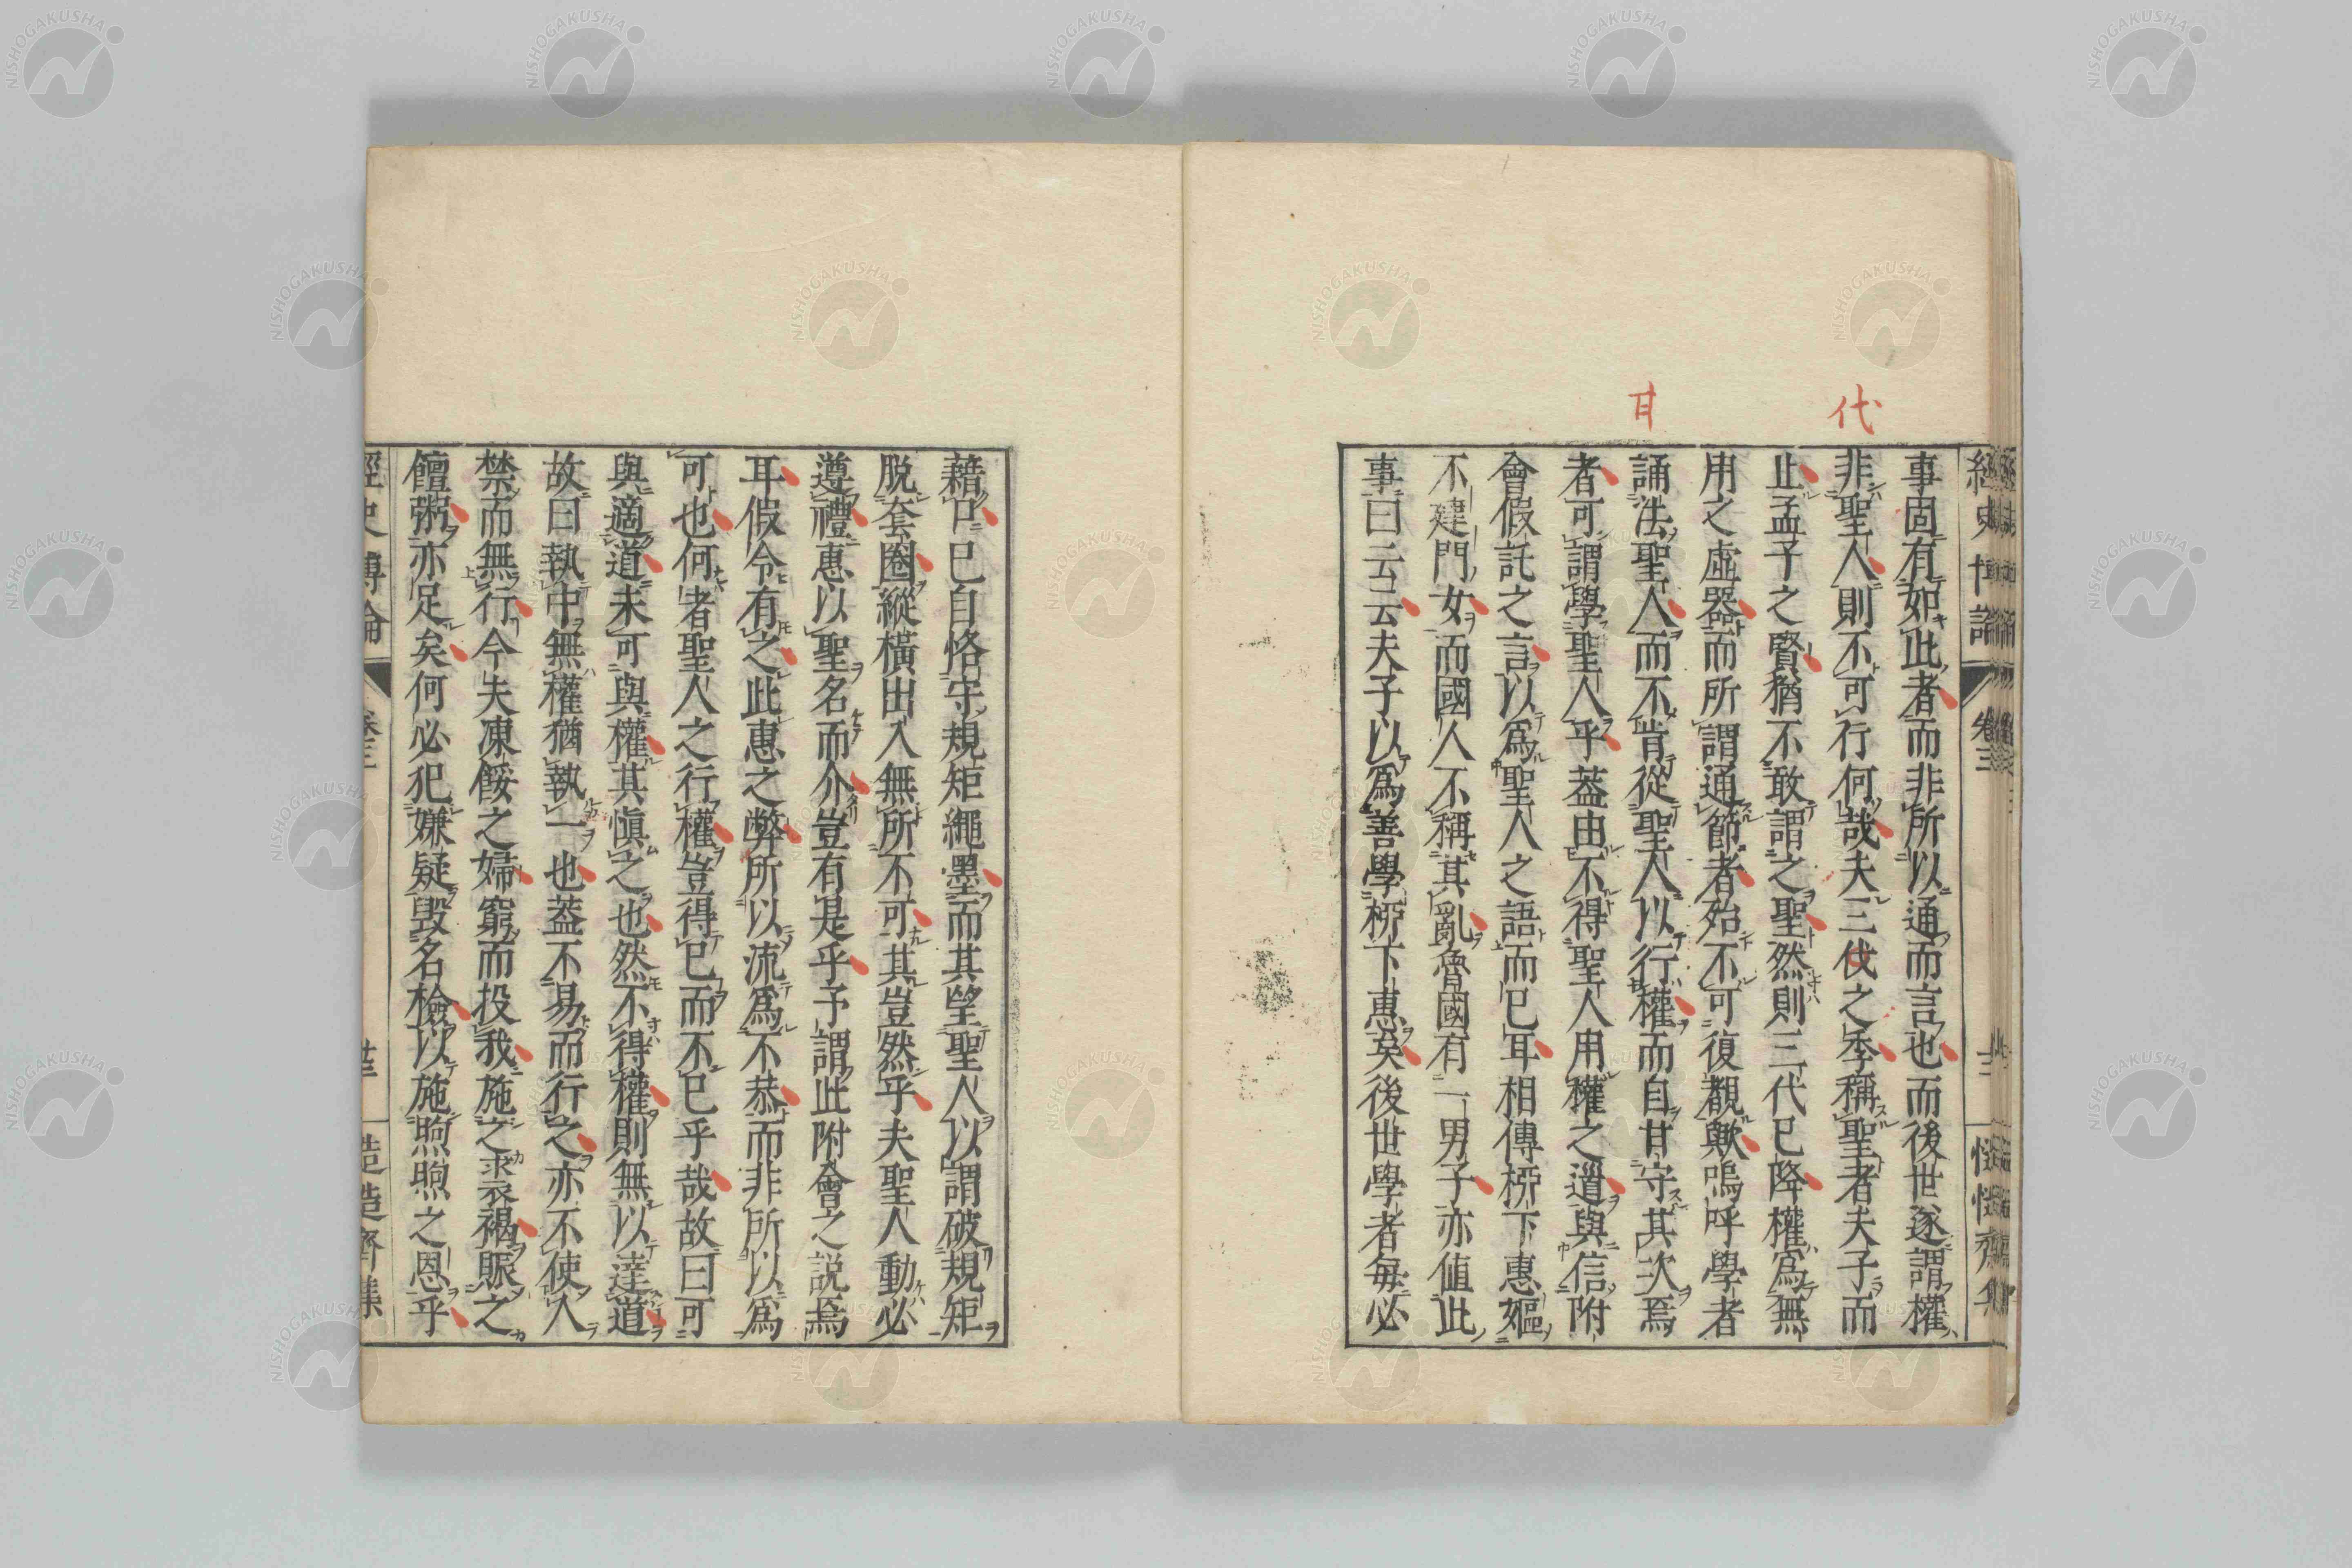 代
甘
事固有如此者而非所以通而言也而後世遂謂權
非聖人則不可行何哉夫三伐之季稱聖者夫子而
止孟子之賢猶不敢謂之聖然則三代已降權爲無
用之虛器而所謂通節者殆不可復覩歟嗚呼學者
誦法聖人而不肯從聖人以行權而自甘守其次焉
者可謂學聖人乎葢由不得聖人用權之道與信附
會假託之言以爲聖人之語而已耳相傳栁下惠嫗
不建門女而國人不稱其亂魯國有一男子亦値此
事曰云云夫子以爲善學栁下惠矣後世學者每必
經史博論 卷三
藉口已自恪守規矩繩墨而其望聖人以謂破規矩
脱套圈縱橫出入無所不可其豈然乎夫聖人動必
遵禮惠以聖名而介豈有是乎予謂此附會之説焉
耳假令有之此惠之弊所以流爲不恭而非所以爲
可也何者聖人之行權豈得已而不已乎哉故曰可
與適道未可與權其愼之也然不得權則無以達道
故曰執中無權猶執一也葢不易而行之亦不使人
禁而無行今夫凍餒之婦窮而投我施之裘褐賑之
饘粥亦足矣何必犯嫌疑毀名檢以施煦煦之恩乎
NISHOGAKUSHA